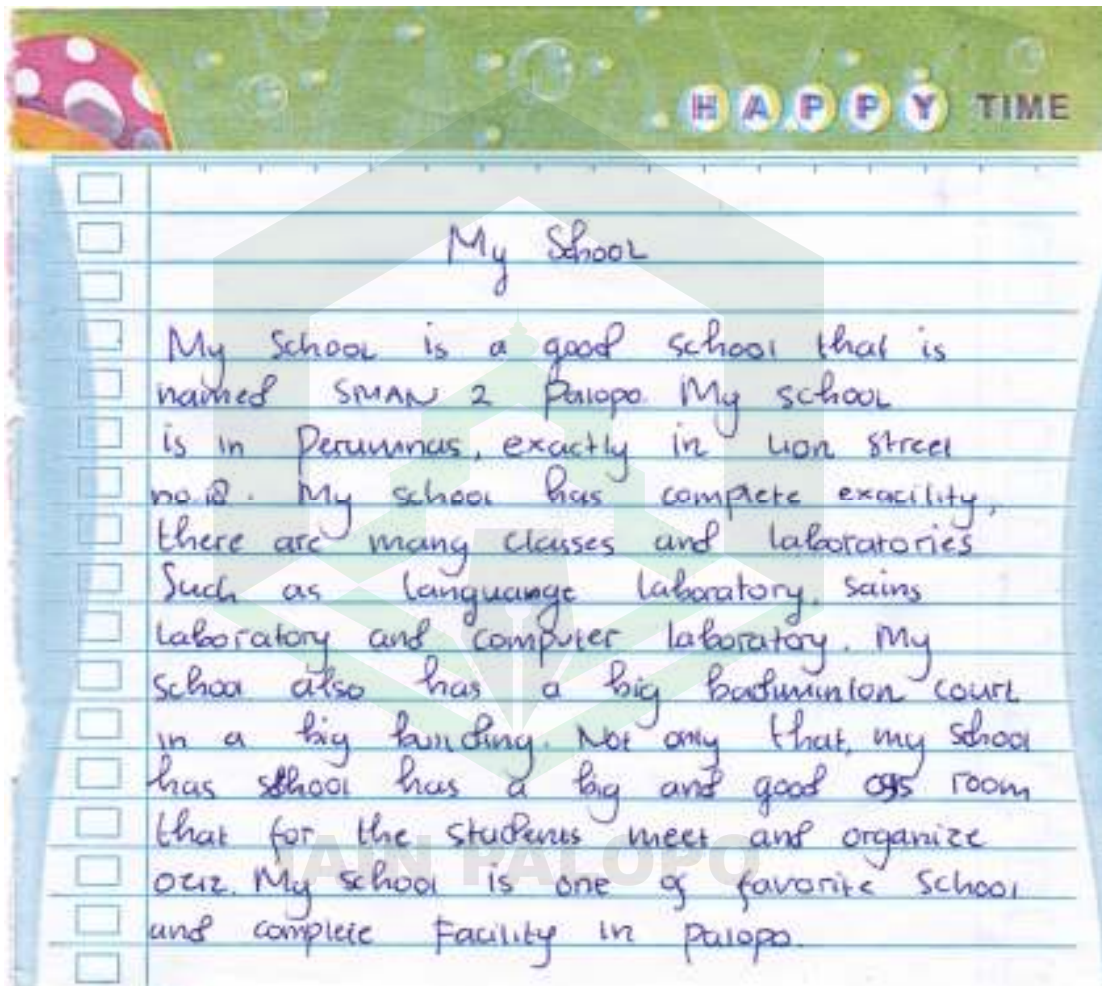 HAPPY TIME
My School
My School is a good school that is
named SMAN 2 Palopo. My school
is in Perumnas, exactly in Lion street
no.18. My school has complete exacility,
there are many classes and laboratories
Such as languange laboratory, sains
laboratory and computer laboratory. My
school also has a big badminton court
in a big building. Not only that, my school
has school has a big and good room
that for the students meet and organize
My school is one of favorite School
and complete Facility in Palopo.
IAIN PALOPO